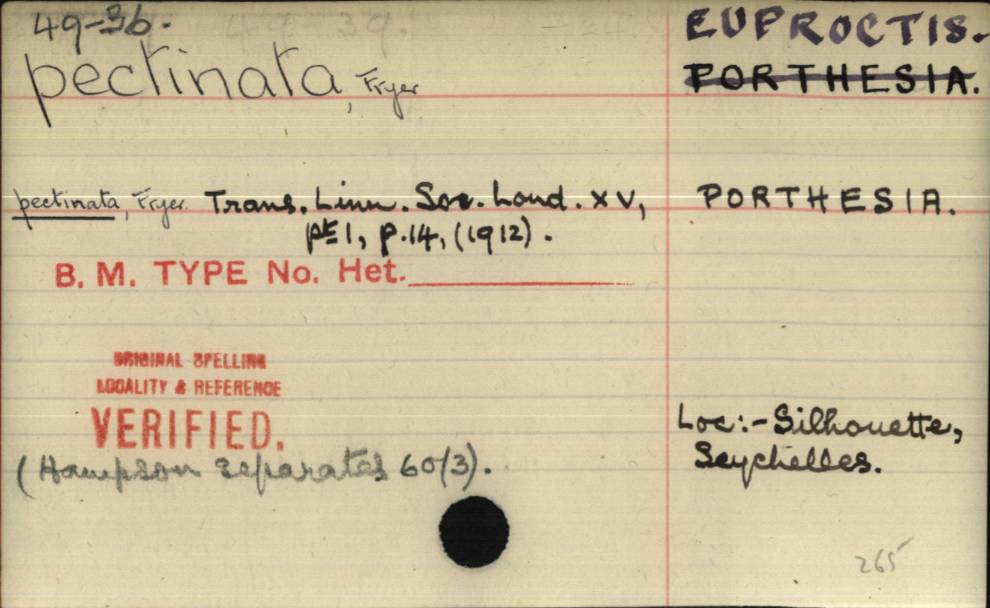 49-36.
EUPROCTIS.
pectinata, Fryer
PORTHESIA.
pectinata, Fryer. Trans. Linn. Soc. Lond. XV, PORTHESIA.
pt 1, p.14, (1912).
B. M. TYPE No. Het.
ORIGINAL SPELLING
LOCALITY & REFERENCE
VERIFIED.
Loc:- Silhouette,
Seychelles.
(Hampson separates 60/3).
265